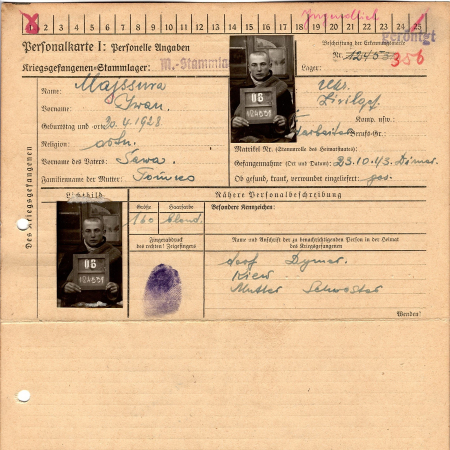 Jugendlich
1 2 3 4 5 6 7 8 9 10 11 12 13 14 15 16 17 18 19 20 21 22 23 24 25
geröntgt
Personalkarte I: Personelle Angaben
Beschriftung der Erkennungsmarke
Nr. 124551
356
Kriegsgefangenen-Stammlager: M.-Stammla
Lager:
Des Kriegsgefangenen
Name: Majssura
Ukr.
Vorname: Iwan.
Zivilgef
Geburtstag und -ort: 20.4.1928.
Komp. usw.
Religion: orth.
Berufs-Gr.
Matrikel Nr. (Stammrolle des Heimatstaates):
Vorname des Vaters: Sawa.
Gefangennahme (Ort und Datum): 23.10.43 Dymar.
Familienname der Mutter:
Ob gesund, krank, verwundet eingeliefert: ges.
Lichtbild
Nähere Personalbeschreibung
Größe
Haarfarbe
Besondere Kennzeichen:
160
blond.
Fingerabdruck
des rechten! Zeigefingers
Name und Anschrift der zu benachrichtigenden Person in der Heimat
des Kriegsgefangenen
dorf Dymar.
Kiew
Mutter Schwester
Wenden!
U6
124551
U6
124551